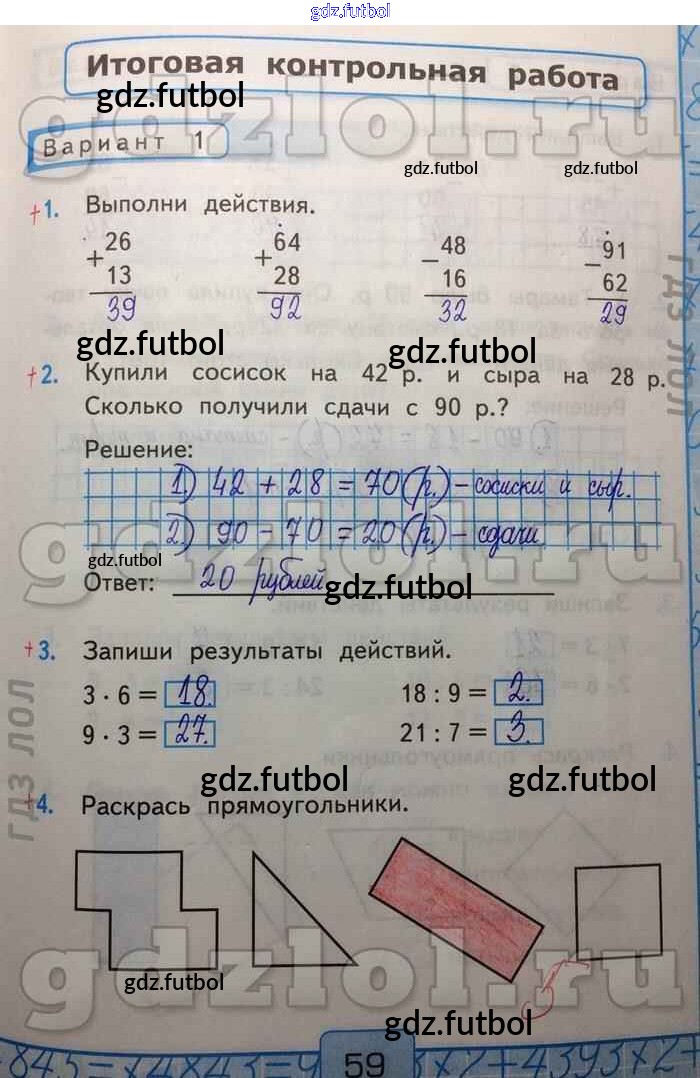 gdz.futbol
Итоговая контрольная работа
gdz.futbol
gdzlol.ru
Вариант 1
gdz.futbol gdz.futbol
+1. Выполни действия.
+ 26 + 64 − 48 − 91
13 28 16 62
39 92 32 29
гдз лол
gdz.futbol gdz.futbol
+2. Купили сосисок на 42 р. и сыра на 28 р.
Сколько получили сдачи с 90 р.?
Решение:
1) 42 + 28 = 70 (р.) – сосиски и сыр.
gdzlol.ru
2) 90 – 70 = 20 (р.) – сдачи.
gdz.futbol
Ответ: 20 рублей
gdz.futbol
+3. Запиши результаты действий.
3 · 6 = 18. 18 : 9 = 2.
9 · 3 = 27. 21 : 7 = 3.
гдз лол
gdz.futbol gdz.futbol
+4. Раскрась прямоугольники.
gdzlol.ru
gdz.futbol
gdz.futbol
59